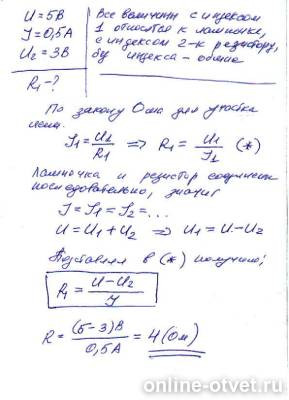 U=5В
J=0,5А
U₂=3В
R₁-?
Все величины с индексом
1 относятся к лампочке,
с индексом 2-к резистору,
без индекса - общие
По закону Ома для участка
цепи.
J₁ = U₁/R₁ => R₁ = U₁/J₁ (*)
Лампочка и резистор соединены
последовательно, значит
J = J₁ = J₂ = ...
U = U₁ + U₂ => U₁ = U - U₂
Подставляя в (*) получило;
R₁ = U - U₂/J
R = (5-3)В/0,5А = 4 (Ом)
online-otvet.ru